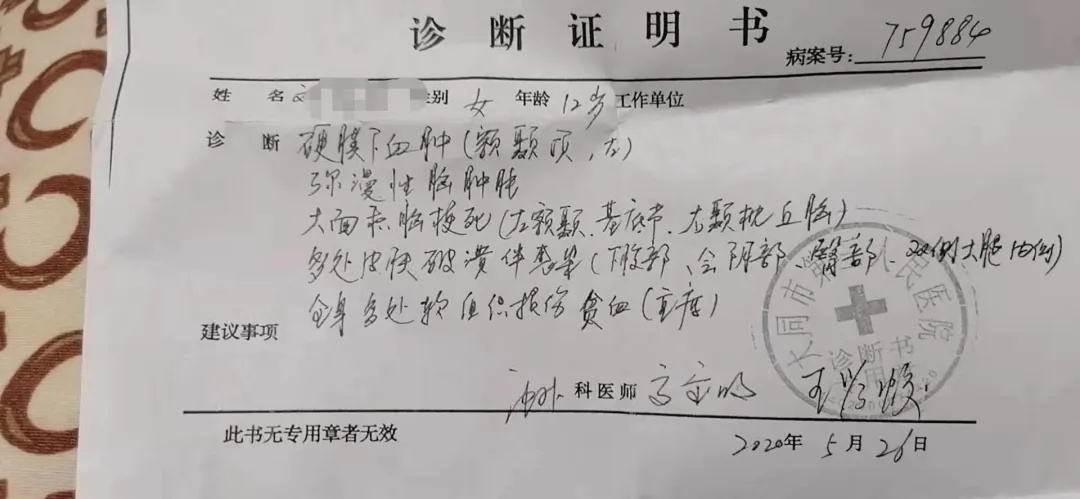 诊断证明书
病案号: 759884
姓名 性别 女 年龄 12岁 工作单位
诊断 硬膜下血肿(额颞顶、左)
弥漫性脑肿胀
大面积脑梗死(左额颞、基底节、右颞枕丘脑)
多处皮肤破溃伴感染(下腹部、会阴部、臀部、双侧大腿内侧)
全身多处软组织损伤 贫血(重度)
建议事项
科医师
大同市 人民医院
诊断书
此书无专用章者无效
2020年5月26日